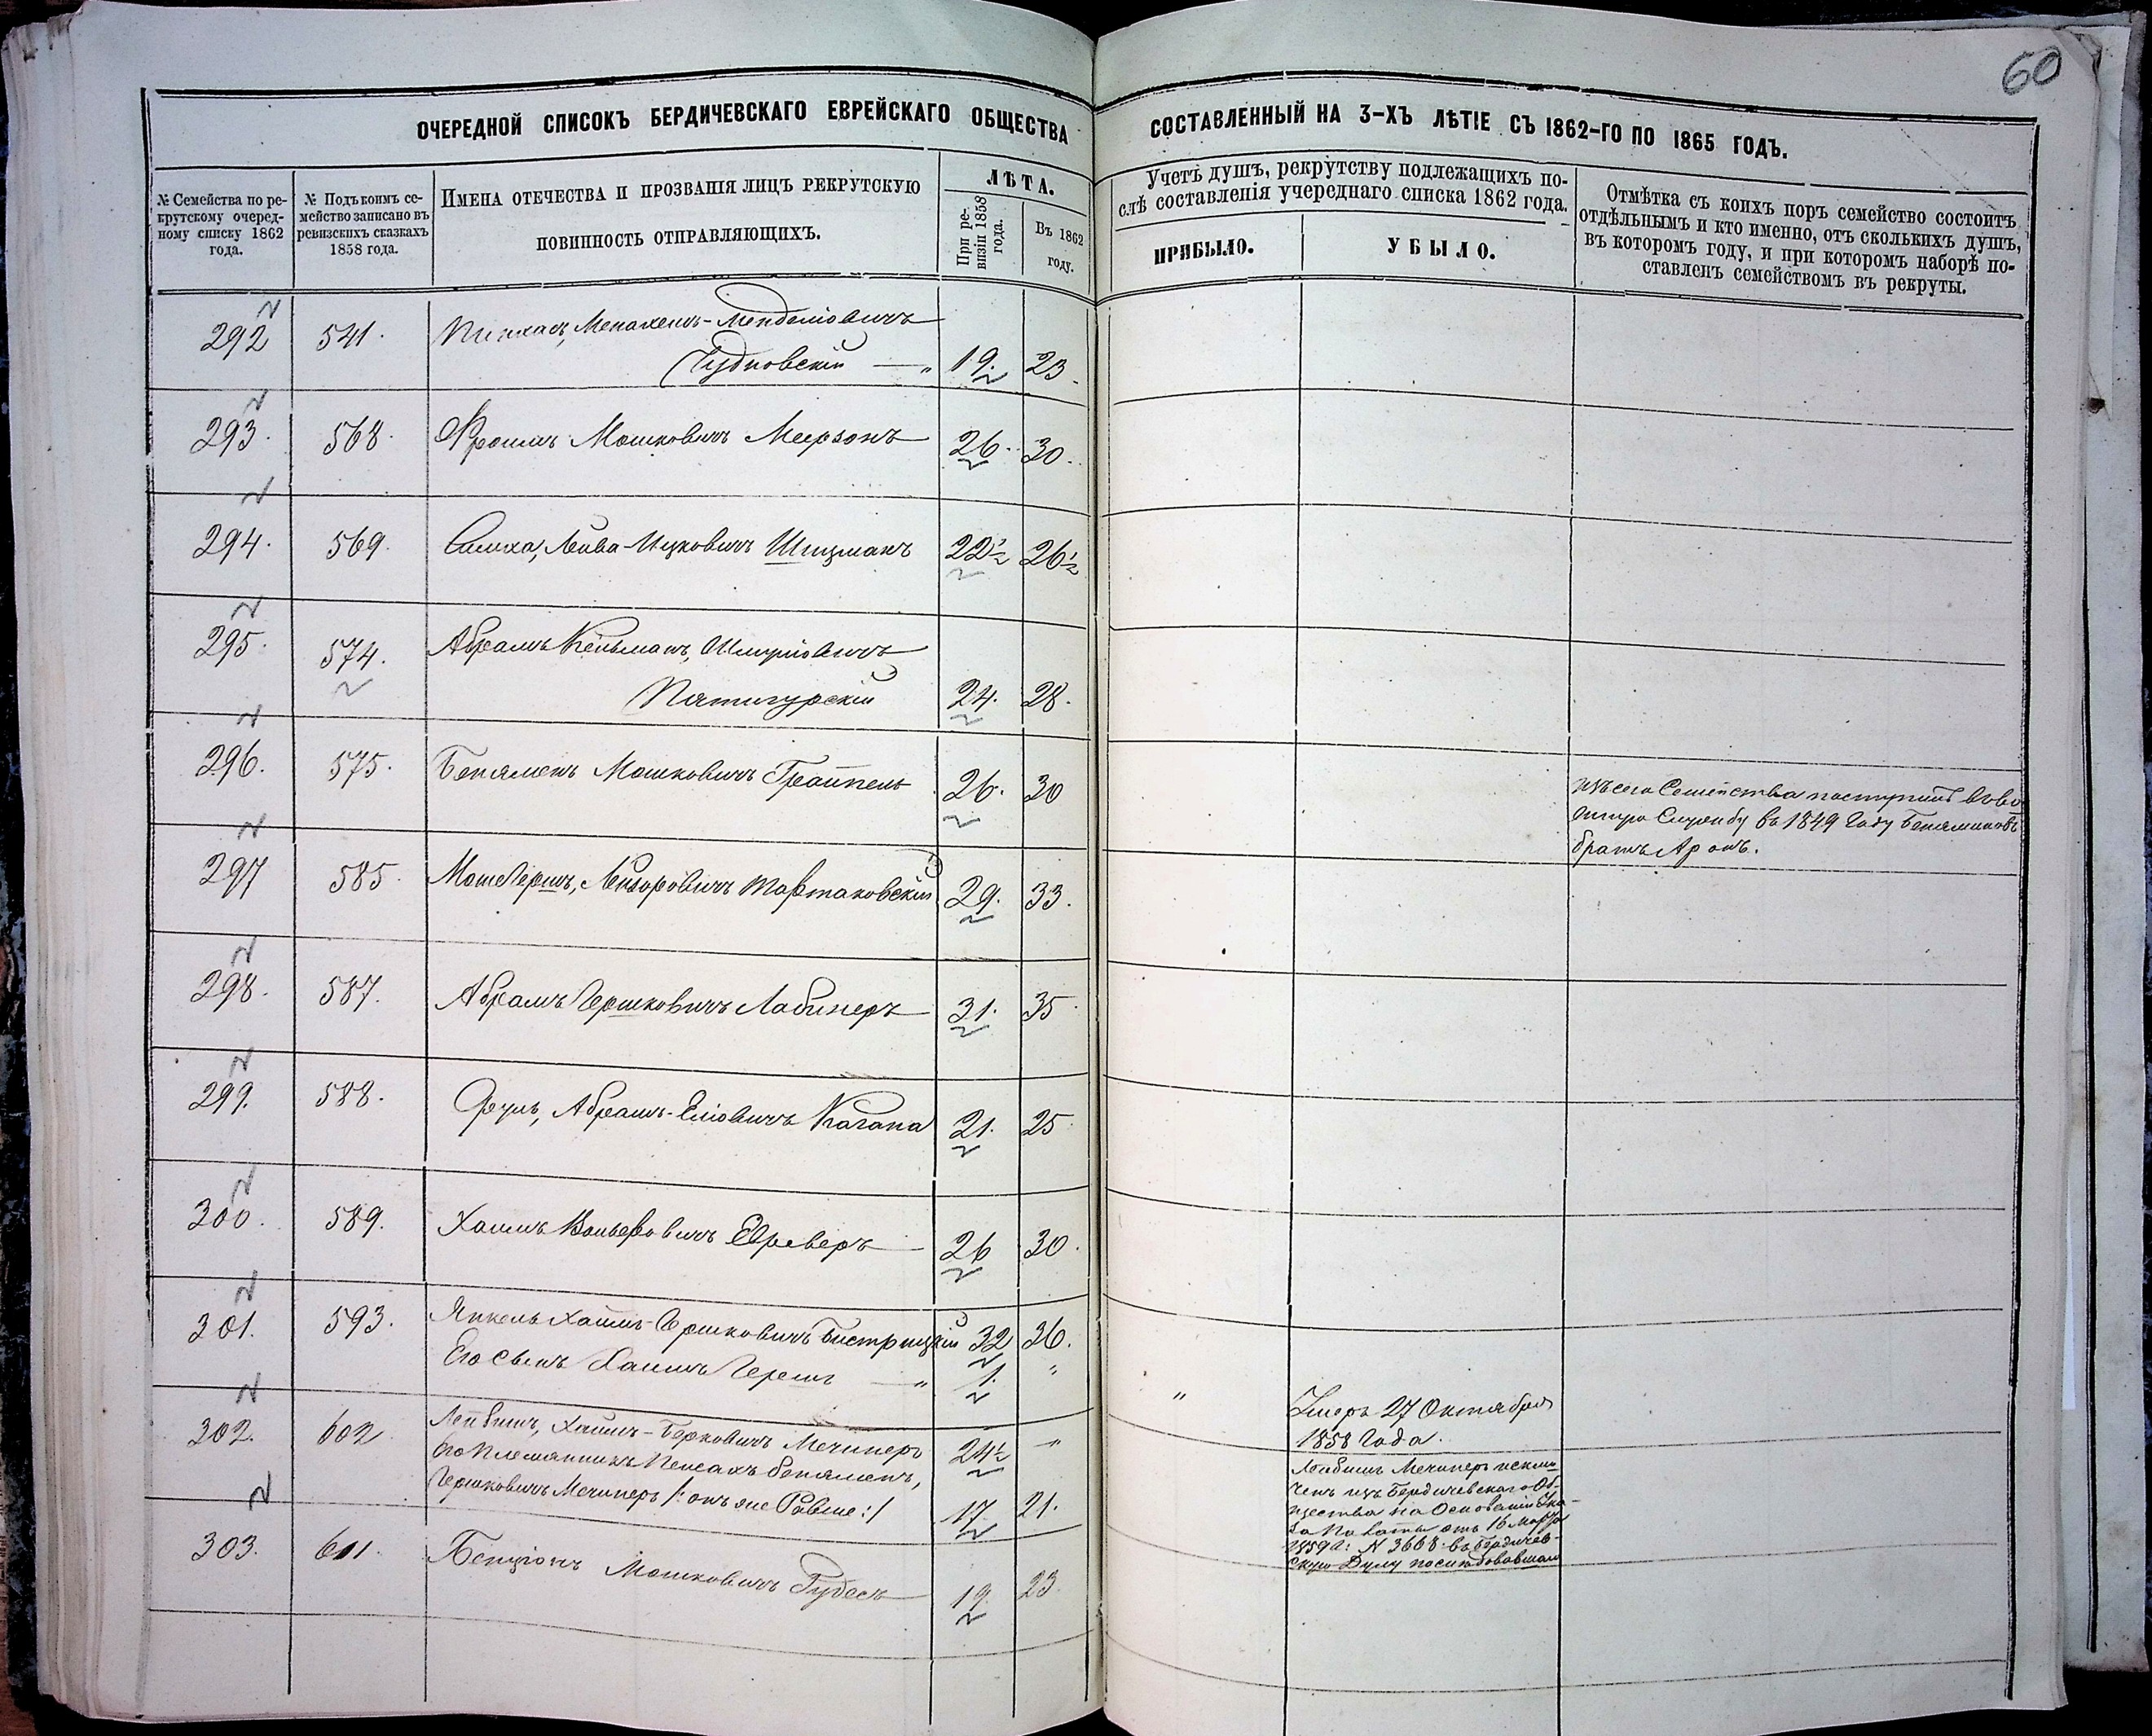 60
ОЧЕРЕДНОЙ СПИСОКЪ БЕРДИЧЕВСКАГО ЕВРЕЙСКАГО ОБЩЕСТВА
СОСТАВЛЕННЫЙ НА 3-ХЪ ЛѢТІЕ СЪ 1862-ГО ПО 1865 ГОДЪ.
№ Семейства по ре-
крутскому очеред-
ному списку 1862
года.
№ Подъ коимъ се-
мейство записано въ
ревизскихъ сказкахъ
1858 года.
ИМЕНА ОТЕЧЕСТВА И ПРОЗВАНІЯ ЛИЦЪ РЕКРУТСКУЮ
ПОВИННОСТЬ ОТПРАВЛЯЮЩИХЪ.
ЛѢТА.
При ре-
визіи 1858
года.
Въ 1862
году.
Учетъ душъ, рекрутству подлежащихъ по-
слѣ составленія учереднаго списка 1862 года.
ПРИБЫЛО.
УБЫЛО.
Отмѣтка съ коихъ поръ семейство состоитъ
отдѣльнымъ и кто именно, отъ сколькихъ душъ,
въ которомъ году, и при которомъ наборѣ по-
ставленъ семействомъ въ рекруты.
292 541. Пинхасъ, Менахемъ-Менделіовичъ
Чудновскій — " 19. 23
293. 568. Фроимъ Мошковичъ Меерзонъ 26. 30.
294. 569. Симха, Лейва-Ицковичъ Шицманъ 22½ 26½
295. 574. Абрамъ Кельманъ, Шмуліовичъ
Пятигурскій 24. 28.
296. 575. Беняменъ Мошковичъ 26. 30
Изъ сего Семейства поступилъ въ во
Службу въ 1849 Году Беняминовъ
братъ Аронъ.
297 585. Мошегершъ, Лейзоровичъ Тартаковскій 29. 33.
298. 587. Абрамъ Гершковичъ Лабинеръ 31. 35
299. 588. Абрамъ-Еліовичъ Кагана 21. 25
300. 589. Хаимъ Вольфовичъ 26 30.
301. 593. Янкель Хаимъ-Гершковичъ Бистрицкій 32 36.
Его сынъ Хаимъ Гершъ — " 1. "
" Умеръ 27 Октября
1858 Года.
302. 602 Лейбишъ, Хаимъ-Берковичъ Мечинеръ 24½ "
Его Племянникъ Пейсахъ Беняменъ,
Гершковичъ Мечинеръ /: онъ же Равве :/ 17. 21.
Лейбишъ Мечинеръ исклю
ченъ изъ Бердичевскаго Об-
щества на Основаніи Ука-
за Палаты отъ 16 Марта
1859 г: N 3668. въ Бердичев-
скую Думу послѣдовавшаго
303. 611. Бенціонъ Мошковичъ Гудесъ 19. 23.